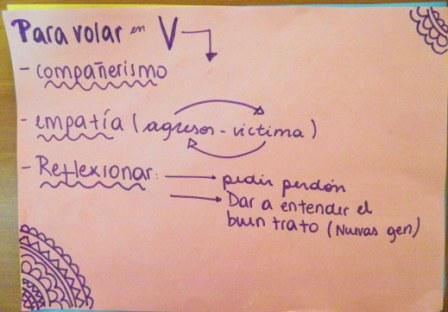 Para volar en V
- compañerismo
- empatía (agresor - victima)
- Reflexionar: pedir perdón
Dar a entender el
buen trato (Nuevas gen)